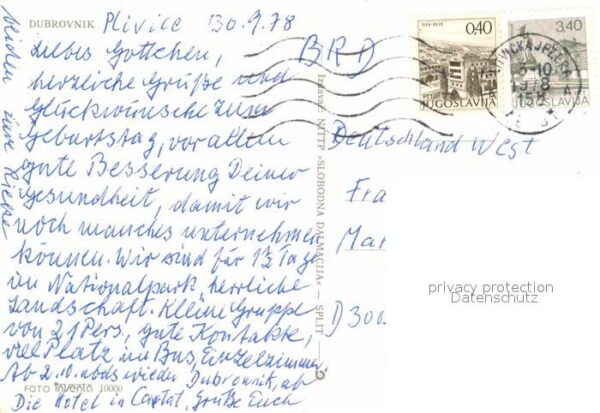 DUBROVNIK
Plivice 30.9.78
Liebes Gottchen,
herzliche Grüße und
Glückwünsche zum
Geburtstag, vor allem
gute Besserung Deiner
Gesundheit, damit wir
noch manches unternehmen
können. Wir sind für 1½ Tage
im Nationalpark, herrliche
Landschaft. Kleine Gruppe
von 21 Pers., gute Kontakte,
viel Platz im Bus, Einzelzimmer.
Ab 2.10. abds wieder Dubrovnik, ab
Die Hotel in Cavtat, Grüße Euch
beiden eure
FOTO inventa 10000
Izdanje: NITPP »SLOBODNA DALMACIJA« — SPLIT
BRD
Deutschland West
Fra
Mar
D 300
0,40
PTT JUGOSLAVIJA
3,40
JUGOSLAVIJA
privacy protection
Datenschutz